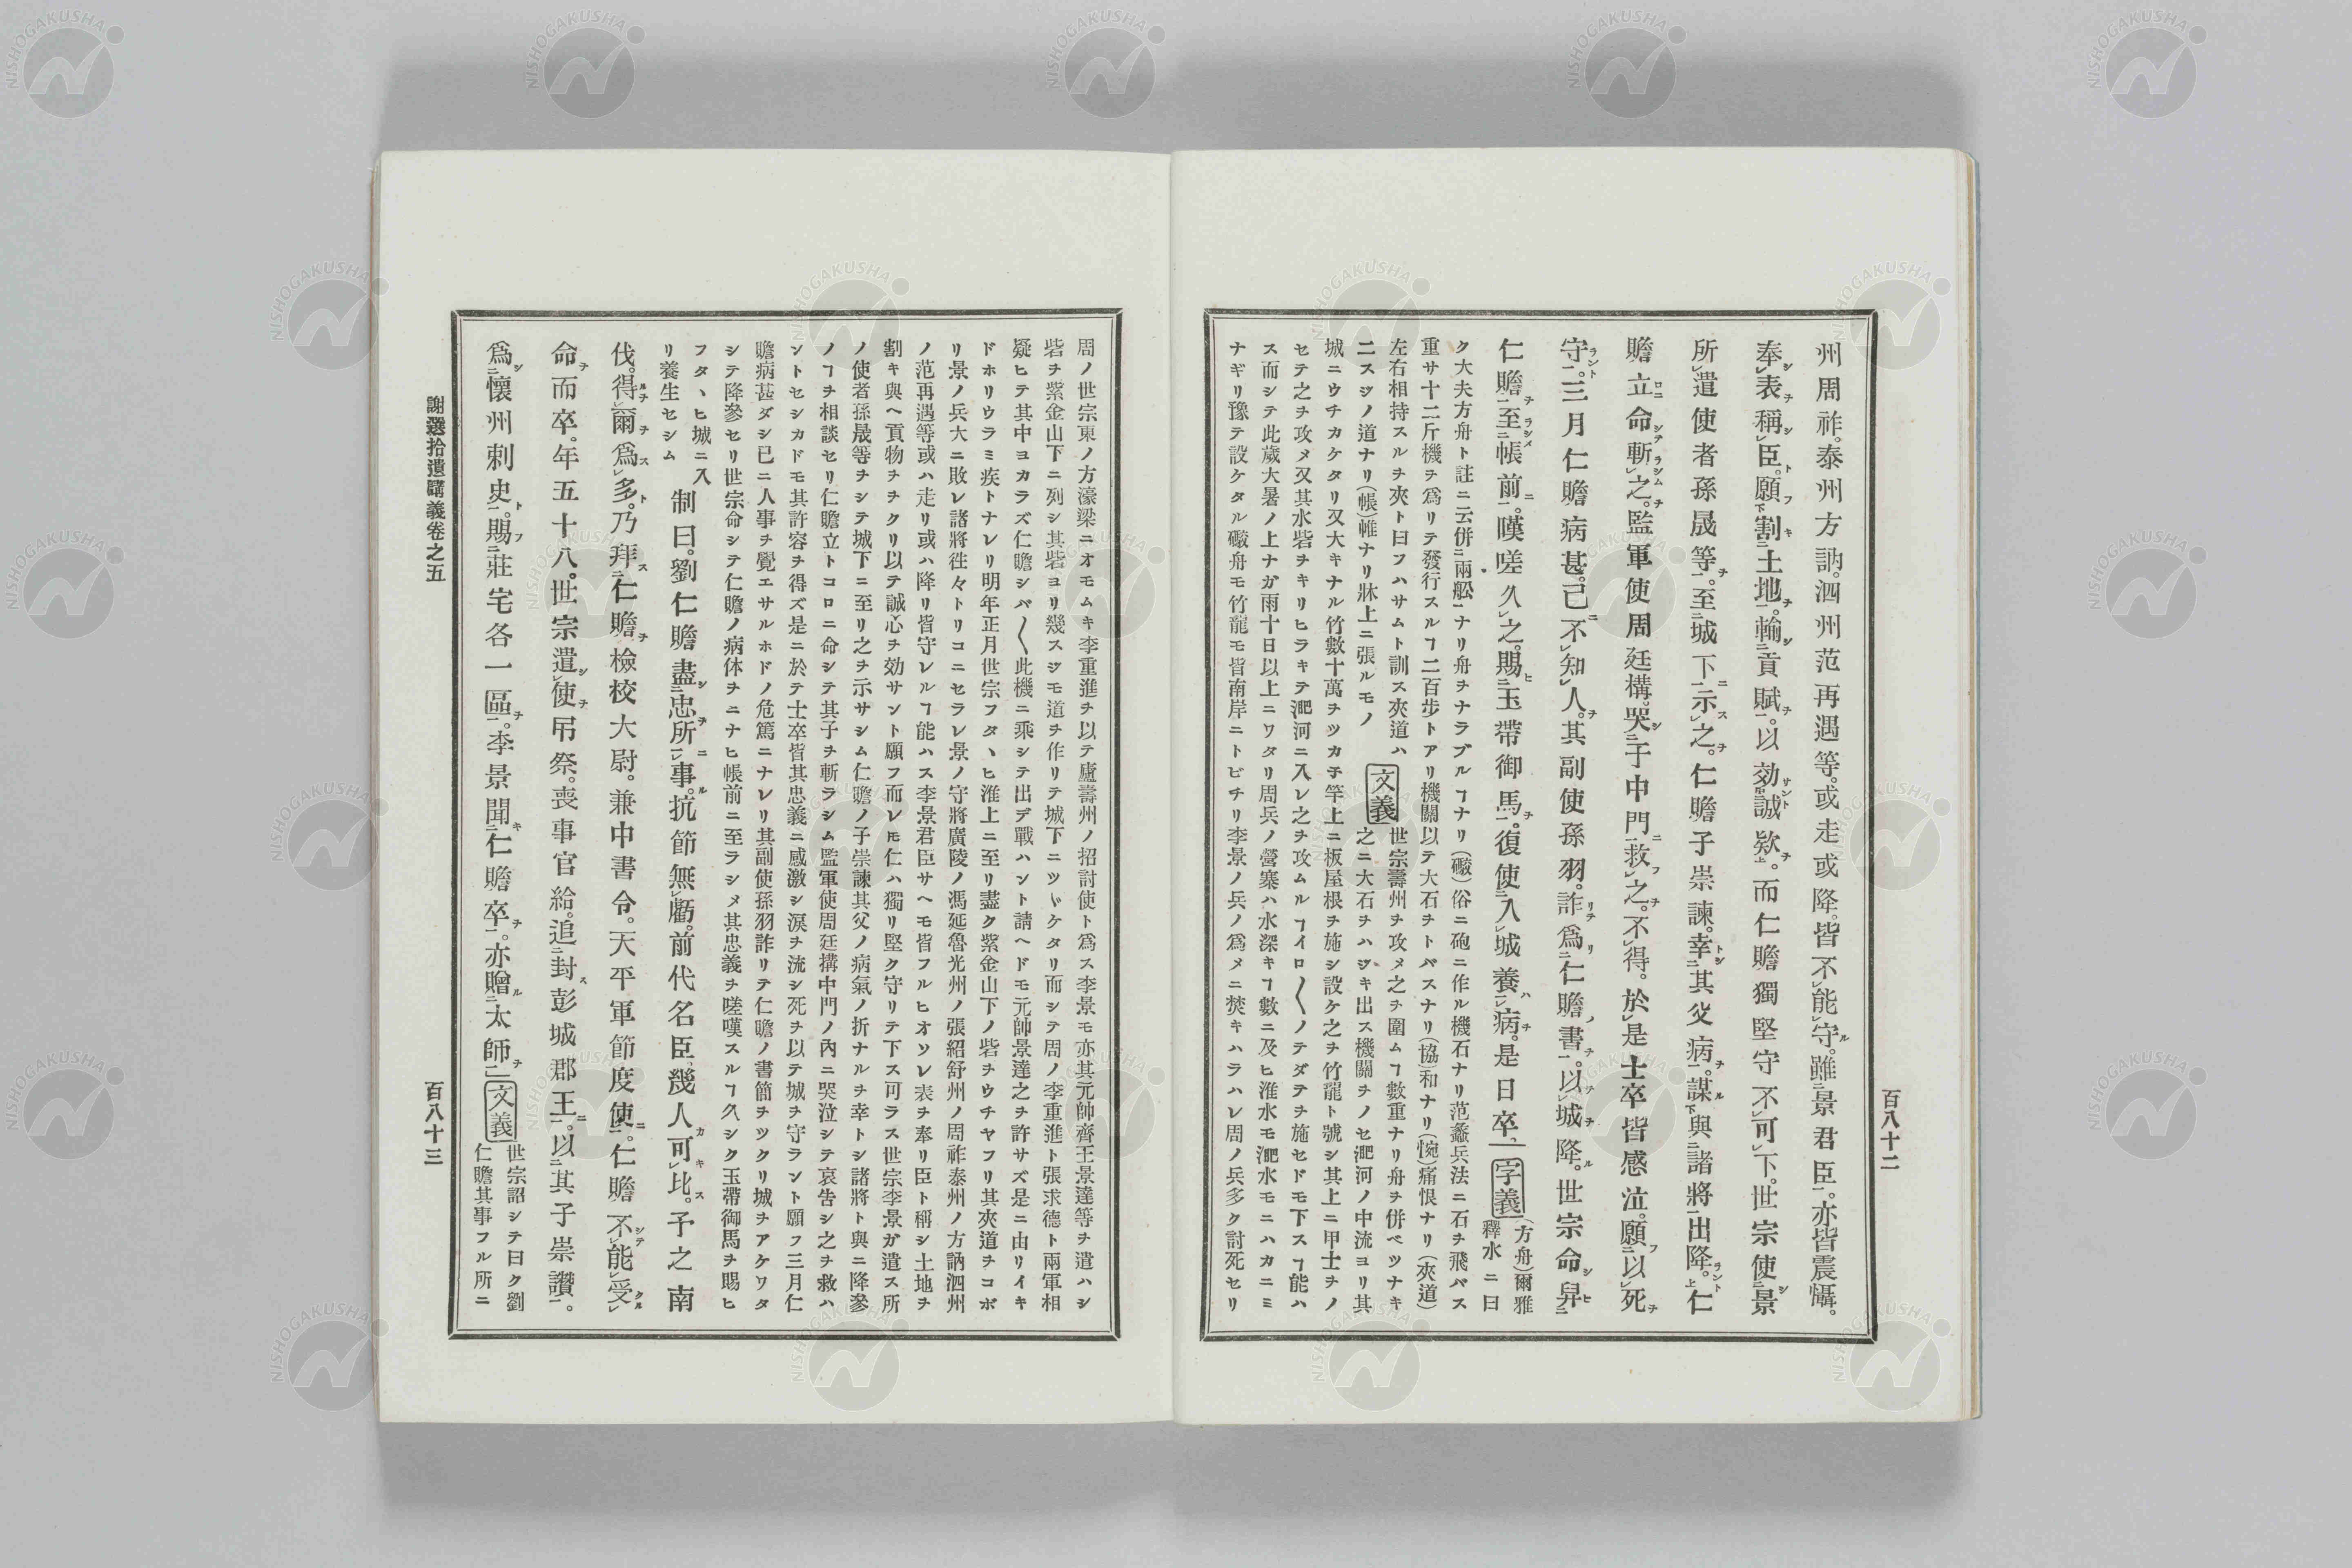 州周祚。泰州方訥。泗州范再遇等。或走或降。皆不能守。雖景君臣。亦皆震懾。
奉表稱臣。願割土地。輸貢賦。以効誠欵。而仁贍獨堅守不可下。世宗使景
所遣使者孫晟等。至城下示之。仁贍子崇諫。幸其父病。謀與諸將出降。仁
贍立命斬之。監軍使周廷構。哭于中門救之。不得。於是士卒皆感泣。願以死
守。三月仁贍病甚。已不知人。其副使孫羽。詐爲仁贍書。以城降。世宗命舁
仁贍至帳前。嘆嗟久之。賜玉帶御馬。復使入城養病。是日卒。
字義
(方舟)爾雅
釋水ニ曰
ク大夫方舟ト註ニ云併兩舩ナリ舟ヲナラブルヿナリ(礮)俗ニ砲ニ作ル機石ナリ范蠡兵法ニ石ヲ飛バス
重サ十二斤機ヲ爲リテ發行スルヿ二百步トアリ機關以テ大石ヲトバスナリ(協)和ナリ(惋)痛恨ナリ(夾道)
左右相持スルヲ夾ト曰フハサムト訓ス夾道ハ
二スヂノ道ナリ(帳)帷ナリ牀上ニ張ルモノ
文義
世宗壽州ヲ攻メ之ヲ圍ムヿ數重ナリ舟ヲ併ベツナキ
之ニ大石ヲハヅキ出ス機關ヲノセ淝河ノ中流ヨリ其
城ニウチカケタリ又大キナル竹數十萬ヲツカ子竿上ニ板屋根ヲ施シ設ケ之ヲ竹龍ト號シ其上ニ甲士ヲノ
セテ之ヲ攻メ又其水砦ヲキリヒラキテ淝河ニ入レ之ヲ攻ムルヿイロ〱ノテダテヲ施セドモ下スヿ能ハ
ス而シテ此歲大暑ノ上ナガ雨十日以上ニワタリ周兵ノ營寨ハ水深キヿ數ニ及ヒ淮水モ淝水モニハカニミ
ナギリ豫テ設ケタル礮舟モ竹龍モ皆南岸ニトビチリ李景ノ兵ノ爲メニ焚キハラハレ周ノ兵多ク討死セリ
百八十二
周ノ世宗東ノ方濠梁ニオモムキ李重進ヲ以テ廬壽州ノ招討使ト爲ス李景モ亦其元帥齊王景達等ヲ遣ハシ
砦ヲ紫金山下ニ列シ其砦ヨリ幾スヂモ道ヲ作リテ城下ニツヾケタリ而シテ周ノ李重進ト張求德ト兩軍相
疑ヒテ其中ヨカラズ仁贍シバ〱此機ニ乘シテ出デ戰ハント請ヘドモ元帥景達之ヲ許サズ是ニ由リイキ
ドホリウラミ疾トナレリ明年正月世宗フタヽヒ淮上ニ至リ盡ク紫金山下ノ砦ヲウチヤフリ其夾道ヲコボ
リ景ノ兵大ニ敗レ諸將徃々トリコニセラレ景ノ守將廣陵ノ馮延魯光州ノ張紹舒州ノ周祚泰州ノ方訥泗州
ノ范再遇等或ハ走リ或ハ降リ皆守レルヿ能ハス李景君臣サヘモ皆フルヒオソレ表ヲ奉リ臣ト稱シ土地ヲ
割キ與ヘ貢物ヲチクリ以テ誠心ヲ効サント願フ而レ𪜈仁ハ獨リ堅ク守リテ下ス可ラス世宗李景ガ遣ス所
ノ使者孫晟等ヲシテ城下ニ至リ之ヲ示サシム仁贍ノ子崇諫其父ノ病氣ノ折ナルヲ幸トシ諸將ト與ニ降參
ノヿヲ相談セリ仁贍立トコロニ命シテ其子ヲ斬ラシム監軍使周廷搆中門ノ內ニ哭泣シテ哀告シ之ヲ救ハ
ントセシカドモ其許容ヲ得ズ是ニ於テ士卒皆其忠義ニ感激シ淚ヲ流シ死ヲ以テ城ヲ守ラント願フ三月仁
贍病甚ダシ已ニ人事ヲ覺エサルホドノ危篤ニナレリ其副使孫羽詐リテ仁贍ノ書簡ヲツクリ城ヲアケワタ
シテ降參セリ世宗命シテ仁贍ノ病体ヲニナヒ帳前ニ至ラシメ其忠義ヲ嗟嘆スルヿ久シク玉帶御馬ヲ賜ヒ
フタヽヒ城ニ入
リ養生セシム
制曰。劉仁贍盡忠所事。抗節無虧。前代名臣幾人可比。予之南
伐。得爾爲多。乃拜仁贍檢校大尉。兼中書令。天平軍節度使。仁贍不能受
命而卒。年五十八。世宗遣使吊祭。喪事官給。追封彭城郡王。以其子崇讚。
爲懷州刺史。賜莊宅各一區。李景聞仁贍卒。亦贈太師。
文義
世宗詔シテ曰ク劉
仁贍其事フル所ニ
謝選拾遺講義卷之五
百八十三